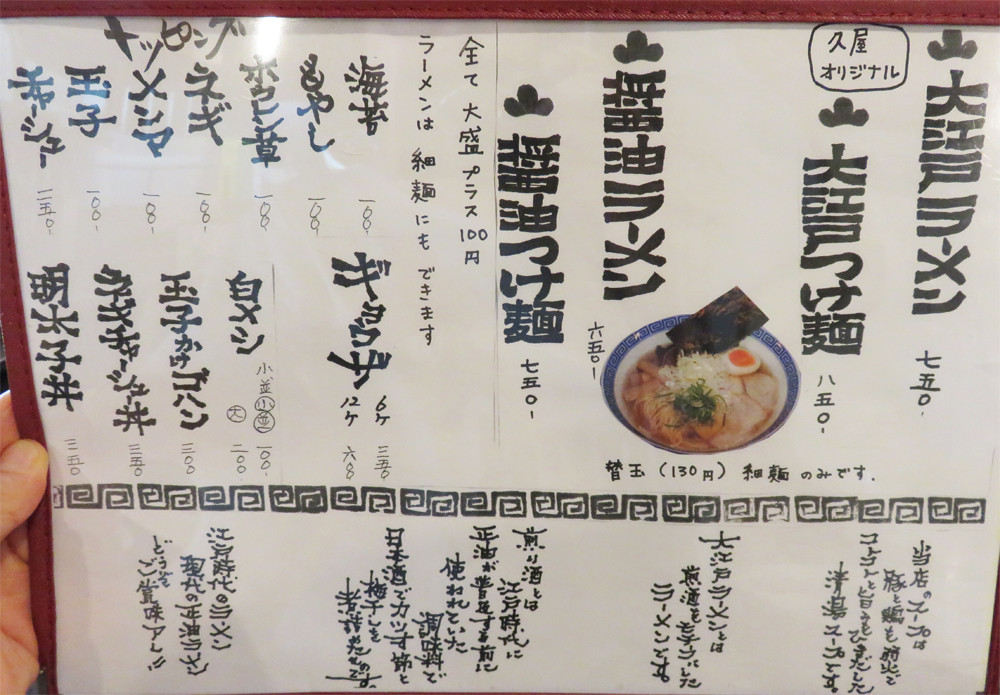 大江戸ラーメン
七五〇-
久屋
オリジナル
大江戸つけ麺
八五〇-
醤油ラーメン
六五〇-
醤油つけ麺
七五〇-
替玉(130円) 細麺のみです.
全て大盛プラス100円
ラーメンは細麺にもできます
トッピング
海苔
一〇〇-
もやし
一〇〇-
ホウレン草
一〇〇-
ネギ
一〇〇-
メンマ
一〇〇-
玉子
一〇〇-
チャーシュー
一五〇-
ギョウザ
6ケ 三五〇
12ケ 六〇〇
白メシ
小並 小並 一〇〇-
大 二〇〇
玉子かけゴハン
三〇〇
ネギチャーシュー丼
三五〇
明太子丼
三五〇
当店のスープは
豚と鶏を別々で
コトコトと旨みをひきだした
清湯スープです。
大江戸ラーメンとは
煎酒をモチーフにした
ラーメンです。
煎り酒とは
江戸時代に
正油が普及する前に
使われていた
調味料で
日本酒でカツオ節と
梅干しを
煮詰めたもの。
江戸時代のラーメン
現代の正油ラーメン
どうぞ
ご賞味アレ!!